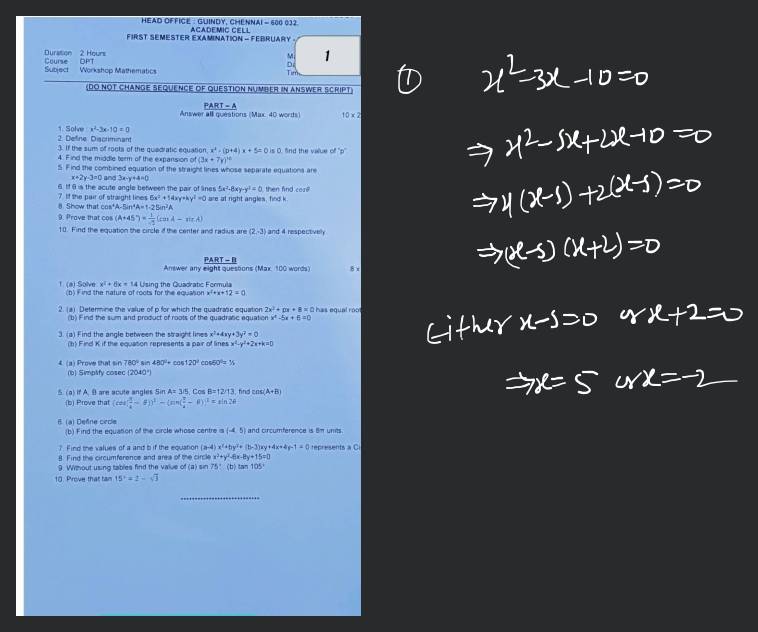 HEAD OFFICE : GUINDY, CHENNAI – 600 032.
ACADEMIC CELL
FIRST SEMESTER EXAMINATION – FEBRUARY -
Duration 2 Hours
Course DPT
Subject Workshop Mathematics
1
(DO NOT CHANGE SEQUENCE OF QUESTION NUMBER IN ANSWER SCRIPT)
PART – A
Answer all questions (Max. 40 words) 10 x 2
1. Solve : x²-3x-10 = 0
2. Define: Discriminant
3. If the sum of roots of the quadratic equation, x² - (p+4) x + 5= 0 is 0, find the value of "p".
4. Find the middle term of the expansion of (3x + 7y)¹⁰
5. Find the combined equation of the straight lines whose separate equations are
x+2y-3=0 and 3x-y+4=0
6. If θ is the acute angle between the pair of lines 5x²-8xy-y² = 0, then find cosθ
7. If the pair of straight lines 6x² +14xy+ky² =0 are at right angles, find k.
8. Show that cos⁴A-Sin⁴A=1-2Sin²A
9. Prove that cos (A+45°) = 1/√2 (cos A − sin A)
10. Find the equation the circle if the center and radius are (2,-3) and 4 respectively
PART – B
Answer any eight questions (Max. 100 words) 8 x
1. (a) Solve: x² + 6x = 14 Using the Quadratic Formula
(b) Find the nature of roots for the equation x²+x+12 = 0
2. (a) Determine the value of p for which the quadratic equation 2x² + px + 8 = 0 has equal root
(b) Find the sum and product of roots of the quadratic equation x² -5x + 6 =0
3. (a) Find the angle between the straight lines x²+4xy+3y² = 0
(b) Find K if the equation represents a pair of lines x²-y²+2x+k=0
4. (a) Prove that sin 780° sin 480°+ cos120° cos60°= ½
(b) Simplify cosec (2040°)
5. (a) If A, B are acute angles Sin A= 3/5, Cos B=12/13, find cos(A+B)
(b) Prove that (cos(π/4 − θ))² − (sin(π/4 − θ))² = sin 2θ
6. (a) Define circle
(b) Find the equation of the circle whose centre is (-4, 5) and circumference is 8π units.
7. Find the values of a and b if the equation (a-4) x²+by²+ (b-3)xy+4x+4y-1 = 0 represents a
8. Find the circumference and area of the circle x²+y²-6x-8y+15=0
9. Without using tables find the value of (a) sin 75° (b) tan 105°
10. Prove that tan 15° = 2 − √3
① x²-3x-10=0
⇒ x²-5x+2x-10=0
⇒ x(x-5)+2(x-5)=0
⇒ (x-5)(x+2)=0
Either x-5=0 or x+2=0
⇒ x=5 or x=-2